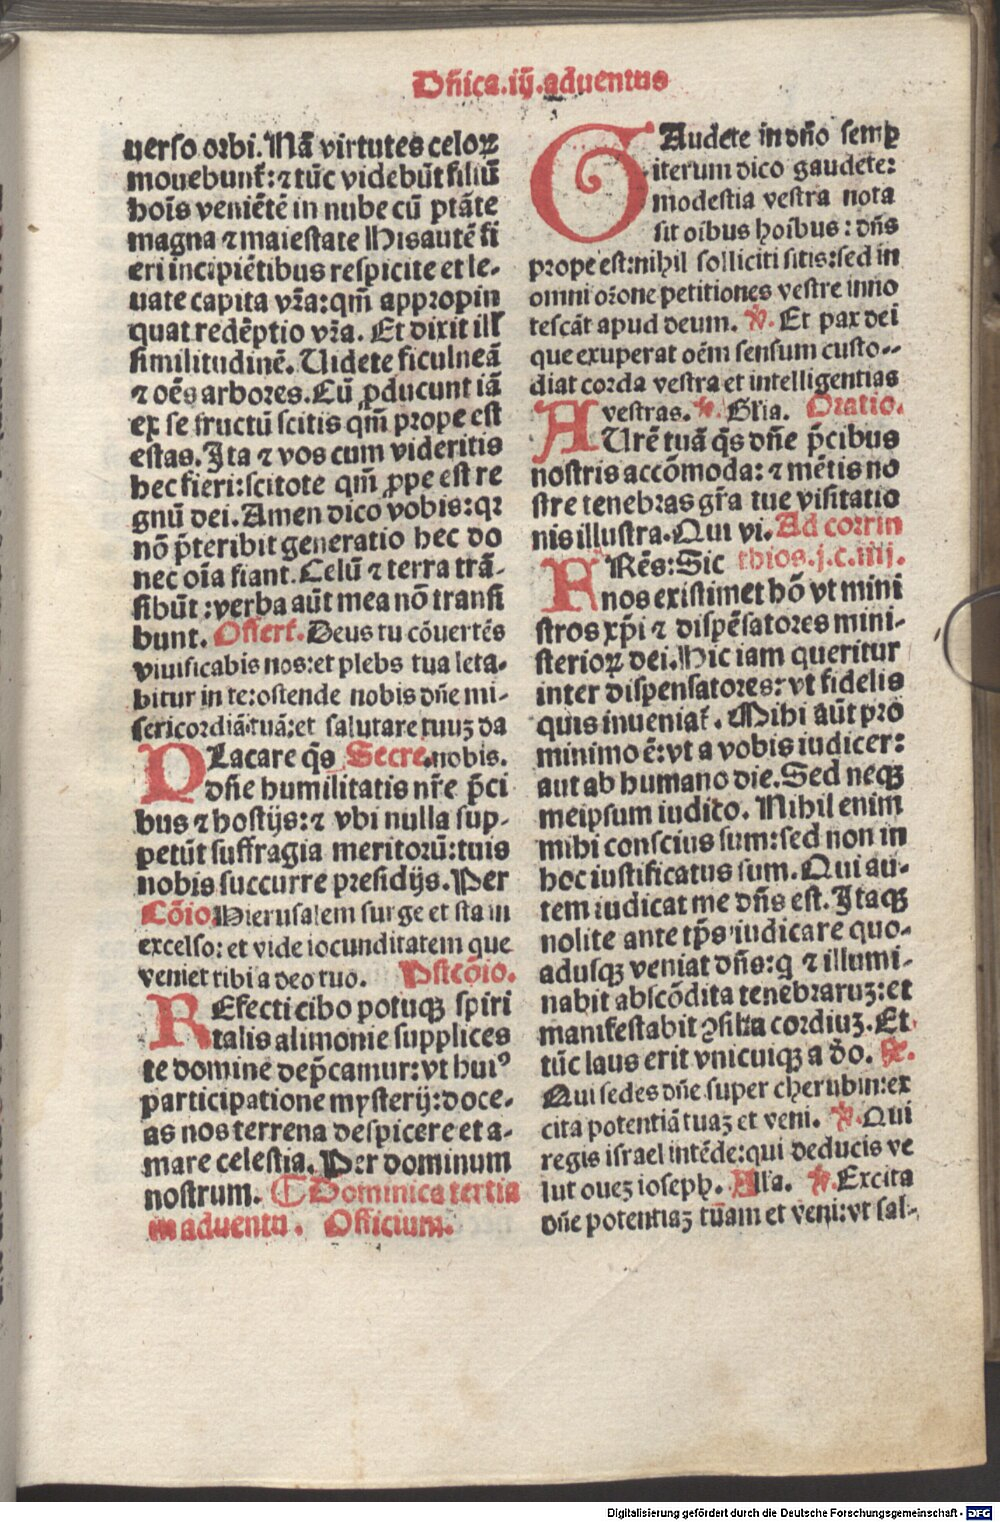 Dn̄ica.iij.aduentus
uerso orbi. Nā virtutes celoꝝ
mouebunt᷑: ⁊ tūc videbūt filiū
hoīs veniētē in nube cū ptāte
magna ⁊ maiestate His autē fi
eri incipiētibus respicite et le-
uate capita vr̄a: qm̄ appropin
quat redēptio vr̄a. Et dixit ill̄
similitudinē. Uidete ficulneā
⁊ oēs arbores. Cū ꝓducunt iā
ex se fructū scitis qm̄ prope est
estas. Ita ⁊ vos cum videritis
hec fieri: scitote qm̄ ꝓpe est re
gnū dei. Amen dico vobis: qꝛ
nō p̄teribit generatio hec do
nec oīa fiant. Celū ⁊ terra trā-
sibūt: verba aūt mea nō transi
bunt. Offert᷑. Deus tu cōuertēs
viuificabis nos: et plebs tua leta-
bitur in te: ostende nobis dn̄e mi-
sericordiā tuā: et salutare tuuꝫ da
PLacare q̄s Secre. nobis.
dn̄e humilitatis nr̄e p̄ci
bus ⁊ hostijs: ⁊ vbi nulla sup-
petūt suffragia meritorū: tuis
nobis succurre presidijs. Per
Cōio. Hierusalem surge et sta in
excelso: et vide iocunditatem que
veniet tibi a deo tuo. Pstcōio.
REfecti cibo potuqꝫ spiri
talis alimonie supplices
te domine dep̄camur: vt huiꝰ
participatione mysterij: doce-
as nos terrena despicere et a-
mare celestia. Per dominum
nostrum. ¶ Dominica tertia
in aduentu. Officium.
GAudete in dn̄o semꝑ
iterum dico gaudete:
modestia vestra nota
sit oībus hoībus: dn̄s
prope est: nihil solliciti sitis: sed in
omni orōne petitiones vestre inno
tescāt apud deum. ℣. Et pax dei
que exuperat oēm sensum custo-
diat corda vestra et intelligentias
vestras. ℣. Gl̄ia. Oratio.
AUrē tuā q̄s dn̄e p̄cibus
nostris accōmoda: ⁊ mētis no
stre tenebras gr̄a tue visitatio
nis illustra. Qui vi. Ad corrin
FRēs: Sic thios.j.c.iiij.
nos existimet hō vt mini
stros xp̄i ⁊ dispēsatores mini-
sterioꝝ dei. Hic iam queritur
inter dispensatores: vt fidelis
quis inueniat᷑. Mihi aūt pro
minimo ē: vt a vobis iudicer:
aut ab humano die. Sed neqꝫ
meipsum iudico. Nihil enim
mihi conscius sum: sed non in
hoc iustificatus sum. Qui au-
tem iudicat me dn̄s est. Itaqꝫ
nolite ante tp̄s iudicare quo-
adusqꝫ veniat dn̄s: q ⁊ illumi-
nabit abscōdita tenebraruꝫ: et
manifestabit ꝯsilia cordiuꝫ. Et
tūc laus erit vnicuiqꝫ a dō. ℟.
Qui sedes dn̄e super cherubin: ex
cita potentiā tuaꝫ et veni. ℣. Qui
regis israel intēde: qui deducis ve
lut oueꝫ ioseph. All̄a. ℣. Excita
dn̄e potentiaꝫ tuam et veni: vt sal-
Digitalisierung gefördert durch die Deutsche Forschungsgemeinschaft - DFG